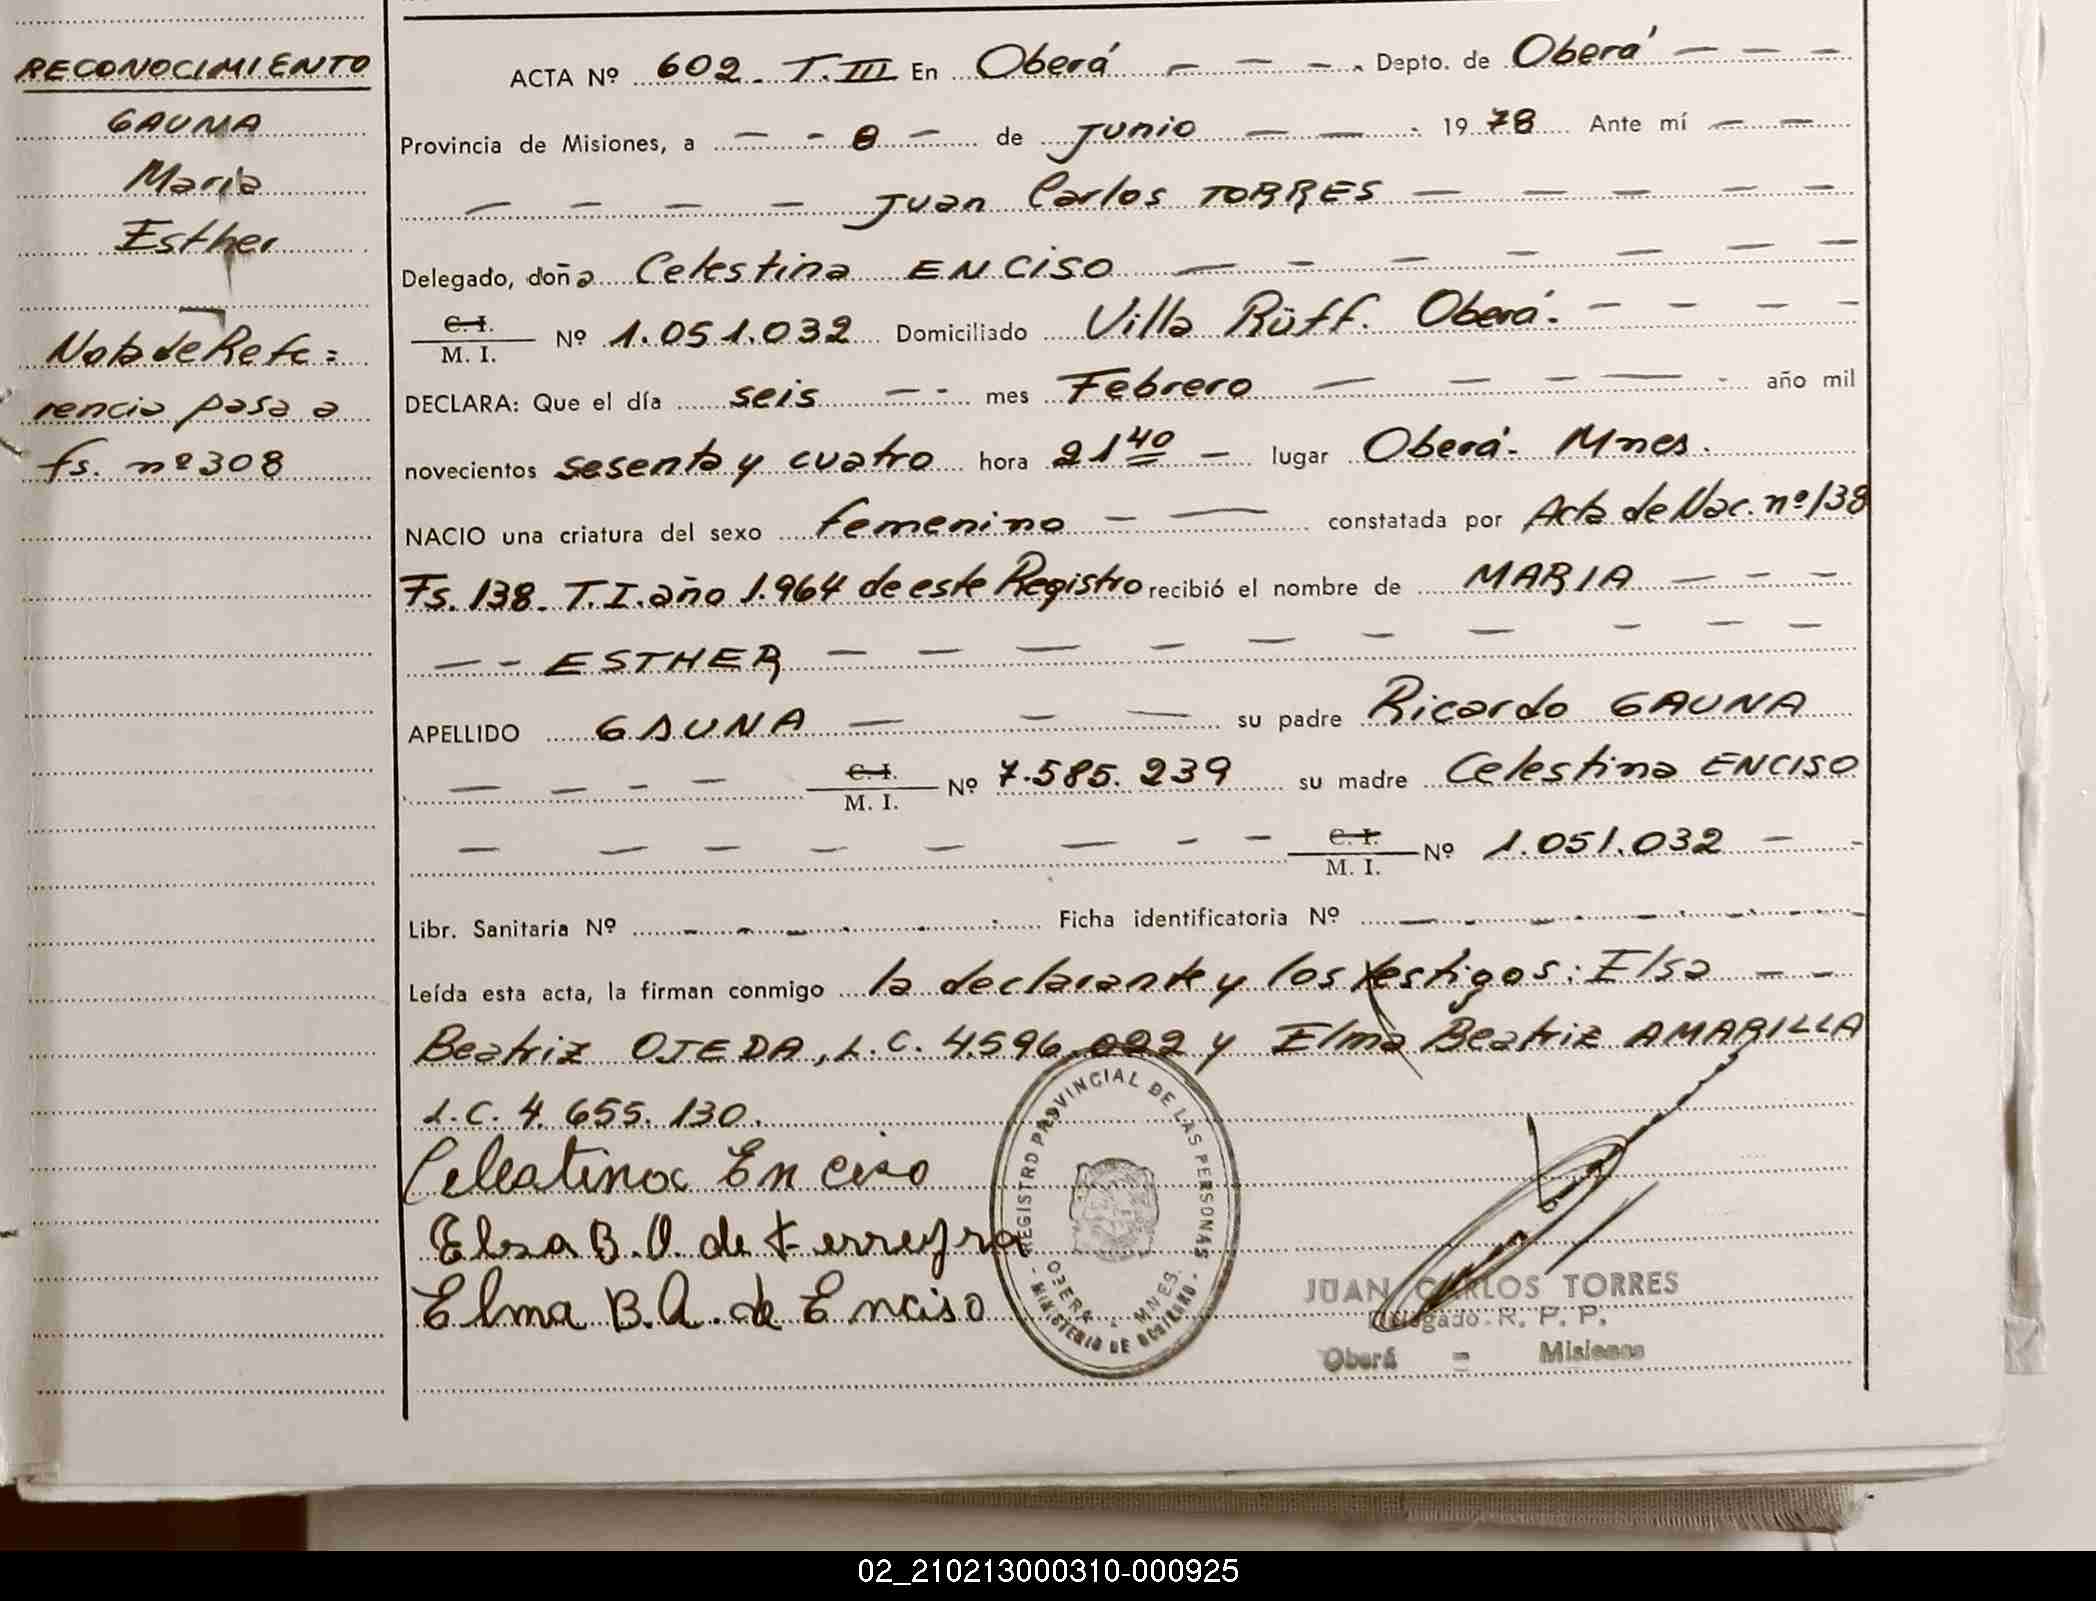 RECONOCIMIENTO
GAUNA
Maria
Esther
Nota de Refe=
rencia pasa a
fs. nº 308
ACTA Nº 602. T. III En Oberá Depto. de Oberá
Provincia de Misiones, a 8 de Junio 1978 Ante mí
Juan Carlos TORRES
Delegado, doña Celestina ENCISO
C. I. / M. I. Nº 1.051.032 Domiciliado Villa Rüff. Oberá.
DECLARA: Que el día seis mes Febrero año mil
novecientos sesenta y cuatro hora 21 40 lugar Oberá. Mnes.
NACIO una criatura del sexo femenino constatada por Acta de Nac. nº 138
Fs. 138. T. I. año 1.964 de este Registro recibió el nombre de MARIA
ESTHER
APELLIDO GAUNA su padre Ricardo GAUNA
C. I. / M. I. Nº 7.585.239 su madre Celestina ENCISO
C. I. / M. I. Nº 1.051.032
Libr. Sanitaria Nº Ficha identificatoria Nº
Leída esta acta, la firman conmigo la declarante y los testigos: Elsa
Beatriz OJEDA, L.C. 4.596.022 y Elma Beatriz AMARILLA
L.C. 4.655.130.
Celestina Enciso
Elsa B. O. de Ferreyra
Elma B. A. de Enciso
REGISTRO PROVINCIAL DE LAS PERSONAS
OBERA - MNES.
- MINISTERIO DE GOBIERNO -
JUAN CARLOS TORRES
Delegado R. P. P.
Oberá - Misiones
02_210213000310-000925